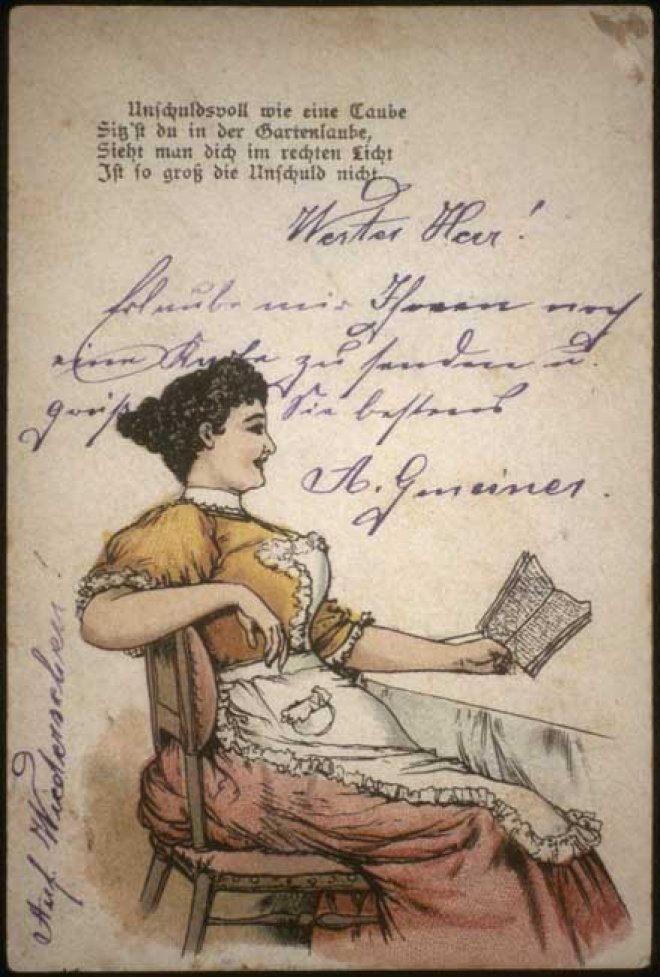 Unschuldsvoll wie eine Taube
Sitz'st du in der Gartenlaube,
Sieht man dich im rechten Licht
Ist so groß die Unschuld nicht.
Werter Herr!
Erlaube mir Ihnen noch
eine Karte zu senden u.
grüße Sie bestens
A. Gmeiner.
Auf Wiedersehen!